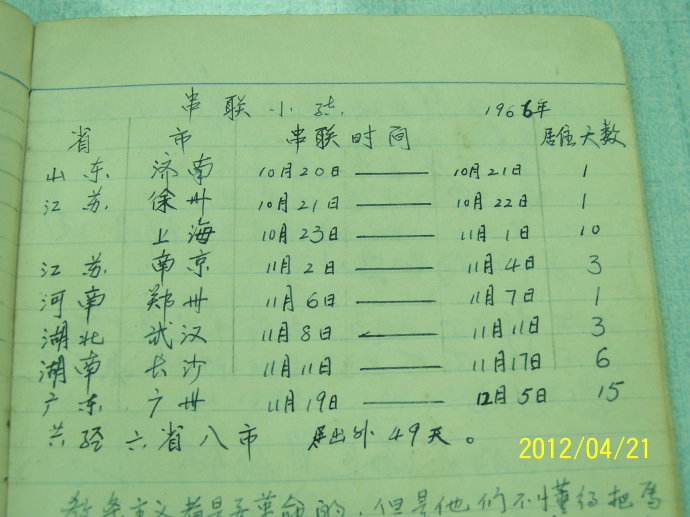 串联小结 1966年
省 市 串联时间 居住天数
山东 济南 10月20日 —— 10月21日 1
江苏 徐州 10月21日 —— 10月22日 1
上海 10月23日 —— 11月1日 10
江苏 南京 11月2日 —— 11月4日 3
河南 郑州 11月6日 —— 11月7日 1
湖北 武汉 11月8日 —— 11月11日 3
湖南 长沙 11月11日 —— 11月17日 6
广东 广州 11月19日 —— 12月5日 15
共经六省八市 出外49天。
2012/04/21
教条主义者是要革命的,但是他们不懂得把马